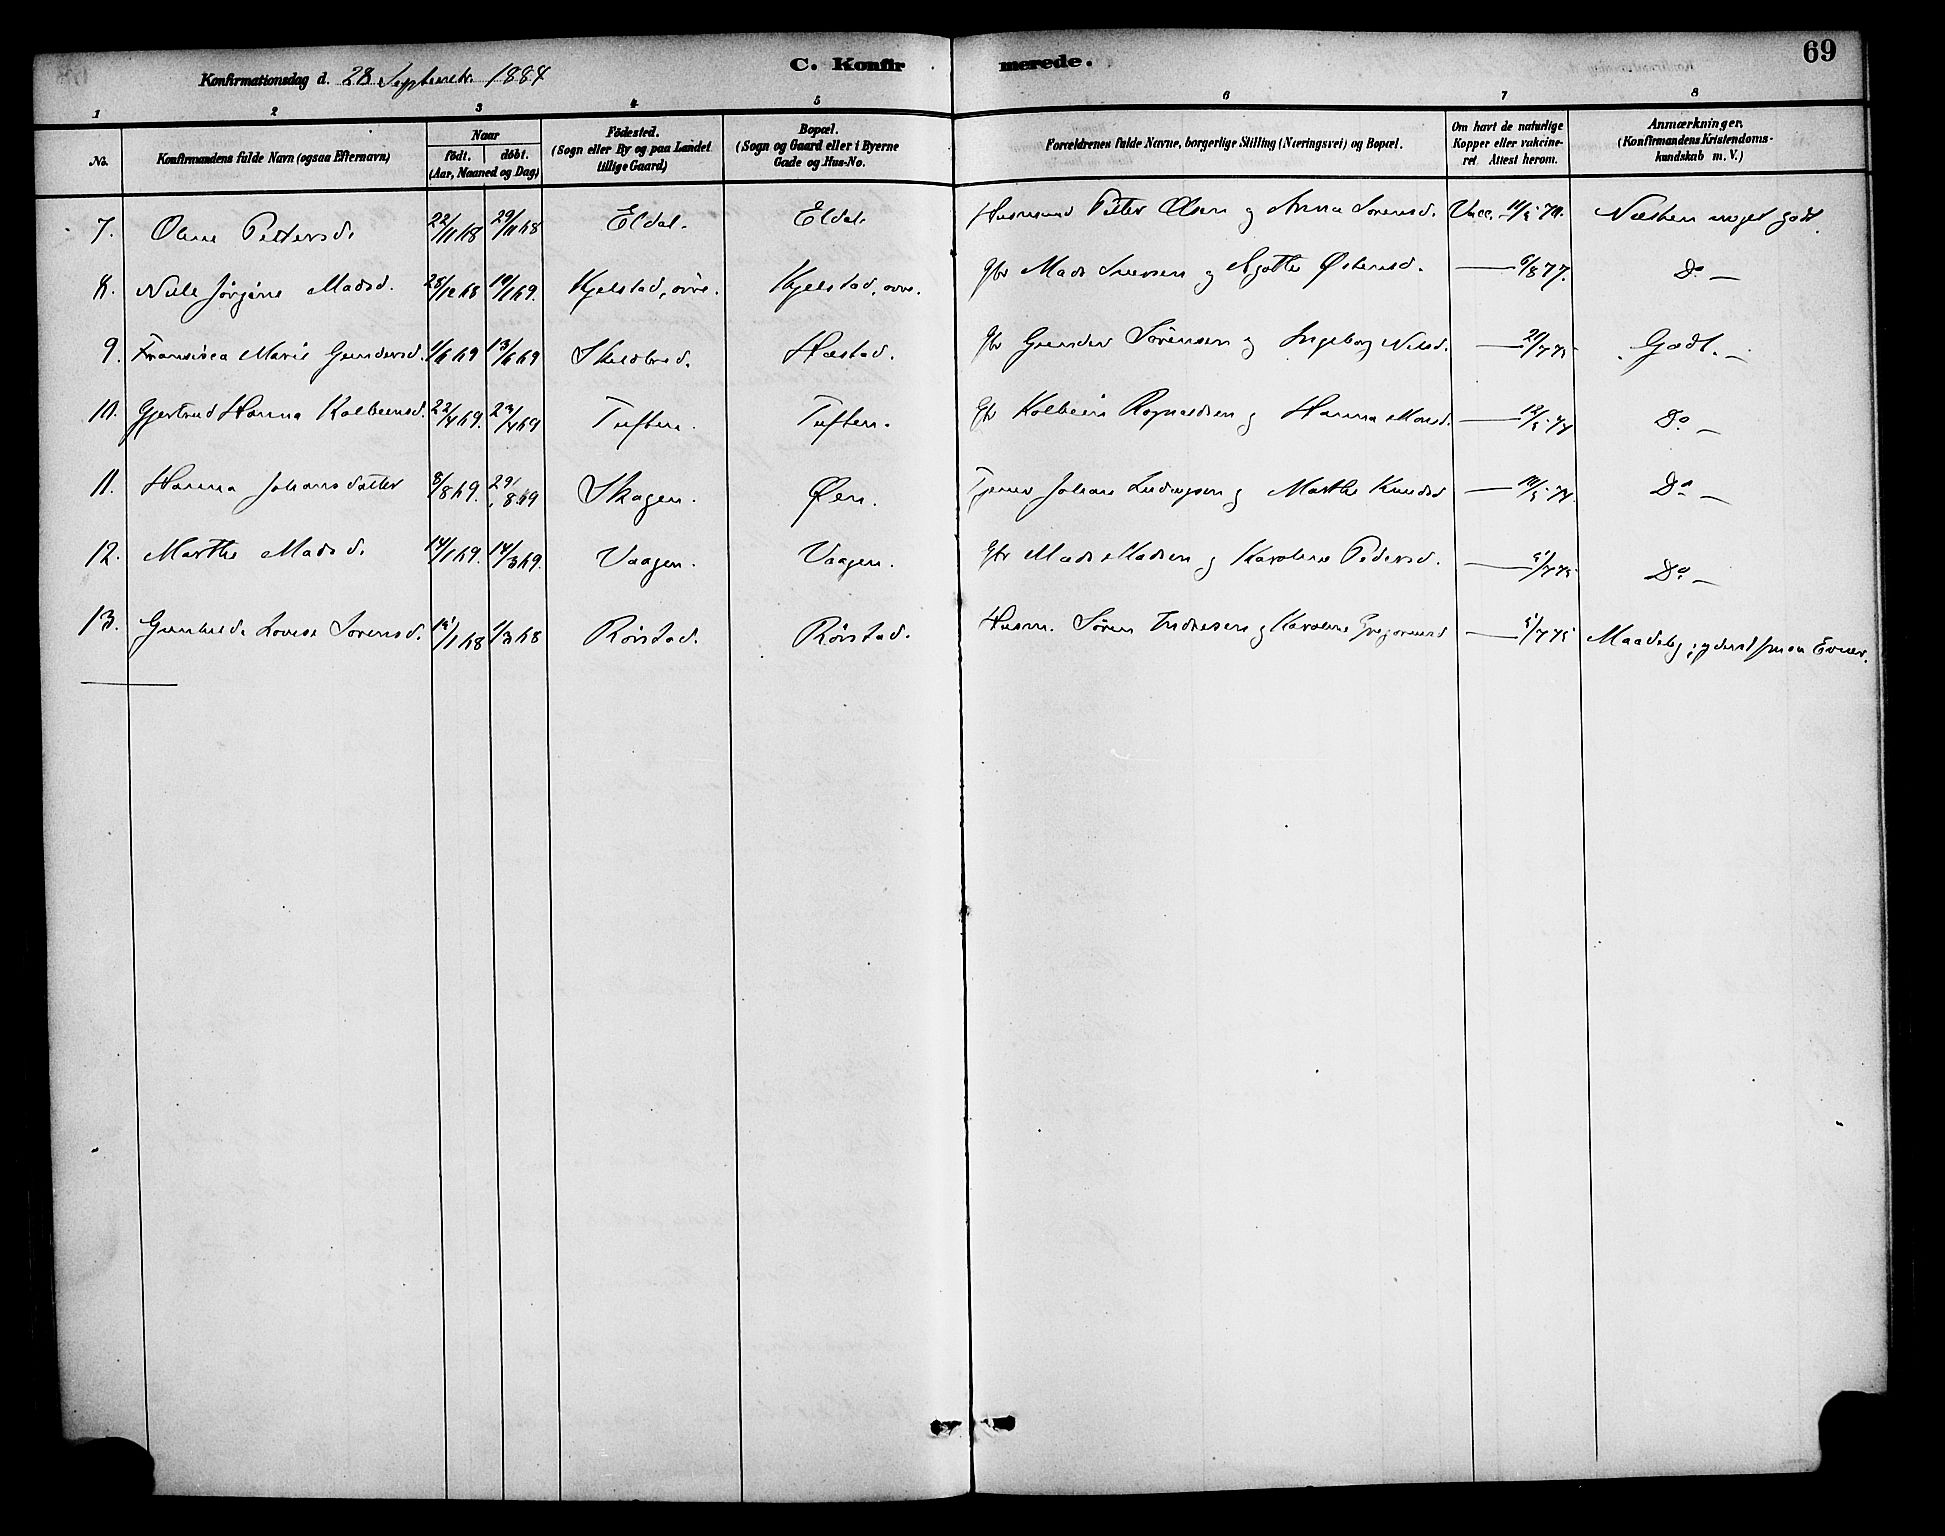 69
Konfirmationsdag d. 28 Septemb. 1884
C. Konfirmerede.
1 2 3 4 5 6 7 8
No. Konfirmandens fulde Navn (ogsaa Efternavn) Naar födt. döbt. (Aar, Maaned og Dag) Födested. (Sogn eller By og paa Landet tillige Gaard) Bopæl. (Sogn og Gaard eller i Byerne Gade og Hus-No. Forældrenes fulde Navne, borgerlige Stilling (Næringsvei) og Bopæl. Om havt de naturlige Kopper eller vakcineret Attest herom. Anmærkninger, (Konfirmandens Kristendomskundskab m. V.)
7. Oline Pettersd. 22/11 68 29/11 68 Eldal. Eldal. Husmand Petter Olsen og Anna Sørensd. Vacc. Næsten meget godt.
8. Mads d. 19/1 69. Kjelstad, øvre. Kjelstad, øvre. Gbr Mads og Agathe Østensd. — 6/8 77. Do —
9. Fransisca Marie Gundersd. 1/6 69 13/6 69 Skeidbred. Hæstad. Gbr Gunder Sørensen og Ingeborg Nilsd. — 21/7 75 Godt. —
10. Gjertrud Hanna Kolbeensd. 22/4 69. Tuften. Tuften. Gbr Kolbein Rognaldsen og Hanna Monsd. — 12/5 74 Do —
11. Hanna Johansdatter 8/8 69. 29/8 69 Skagen. Øen. Tjener Johan Ludvigsen og Marthe Knudsd — Do —
12. Marthe Mads d. 14/1 69. 14/3 69. Vaagen. Vaagen. Gbr Mads Madsen og Karoline Pedersd. — 5/7 75 Do —
13. Gunhilde Lovise Sørensd. 1/3 68 Rørstad. Rørstad. Husm. Søren Endresen og Karoline Gregoriusd — 5/7 75 Maadelig; yderst smaa Evner.